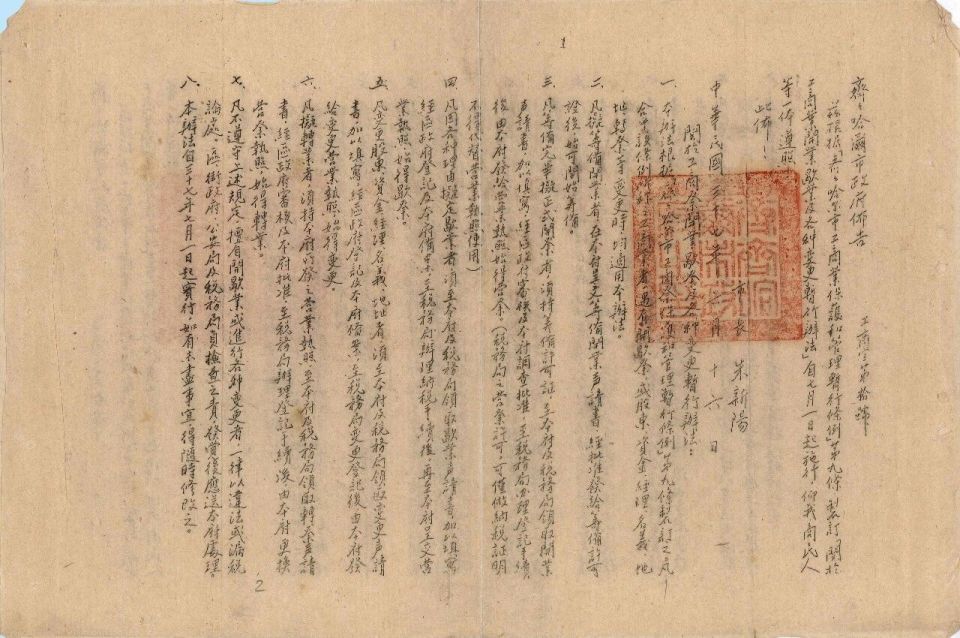 齊々哈爾市政府佈告
工商字第拾號
茲根據「齊々哈爾市工商業保護和管理暫行條例」第九條製訂「關於
工商業開業歇業及各种变更暫行辦法」自七月一日起施行仰我商民人
等一体遵照
此佈
中華民國三十七年 月十六日
市長 朱新陽
関於工商業開業歇業及各种变更暫行辦法：
一、本辦法根據「齊々哈爾市工商業保護和管理暫行條例」第九條製訂之凡
合乎該條例 之工商業者遇有開歇業或股東資金經理名義地
址轉業等变更時均適用本辦法。
二、凡擬筹備開業者須在本府呈交筹備開業声請書經批准發給筹備許可
證後始可開始筹備。
三、凡筹備完畢擬正式開業者須持筹備許可証至本府及稅務局領取開業
声請書加以填寫經區政府審核及本府調查批准至稅務局办理登記手續
後由本府發給营業執照始得营業（稅務局之营業許可可僅做納稅証明
不得代替营業執照使用）
四、凡因各种理由擬定歇業者須至本府及稅務局領取歇業声請書加以填寫
經區政府登記及本府備案至稅務局辦理納稅手續後再至本府呈交营
業執照始得歇業。
五、凡变更股東資金經理名義地址者須至本府及稅務局領取变更声請
書加以填寫經區政府登記及本府備案至稅務局变更登記後由本府發
給变更营業執照始得变更。
六、凡擬轉業者須持本府所發之营業執照至本府及稅務局領取轉業声請
書經區政府審核及本府批准至稅務局辦理登記手續後由本府更換
营業執照始得轉業。
七、凡不遵守上述規定擅自開歇業或進行各种变更者一律以違法或漏稅
論處。區街政府公安局及稅務局負檢查之責發覺後應送本府處理。
八、本辦法自三十七年七月一日起實行如有未盡事宜得隨時修改之。
1
2